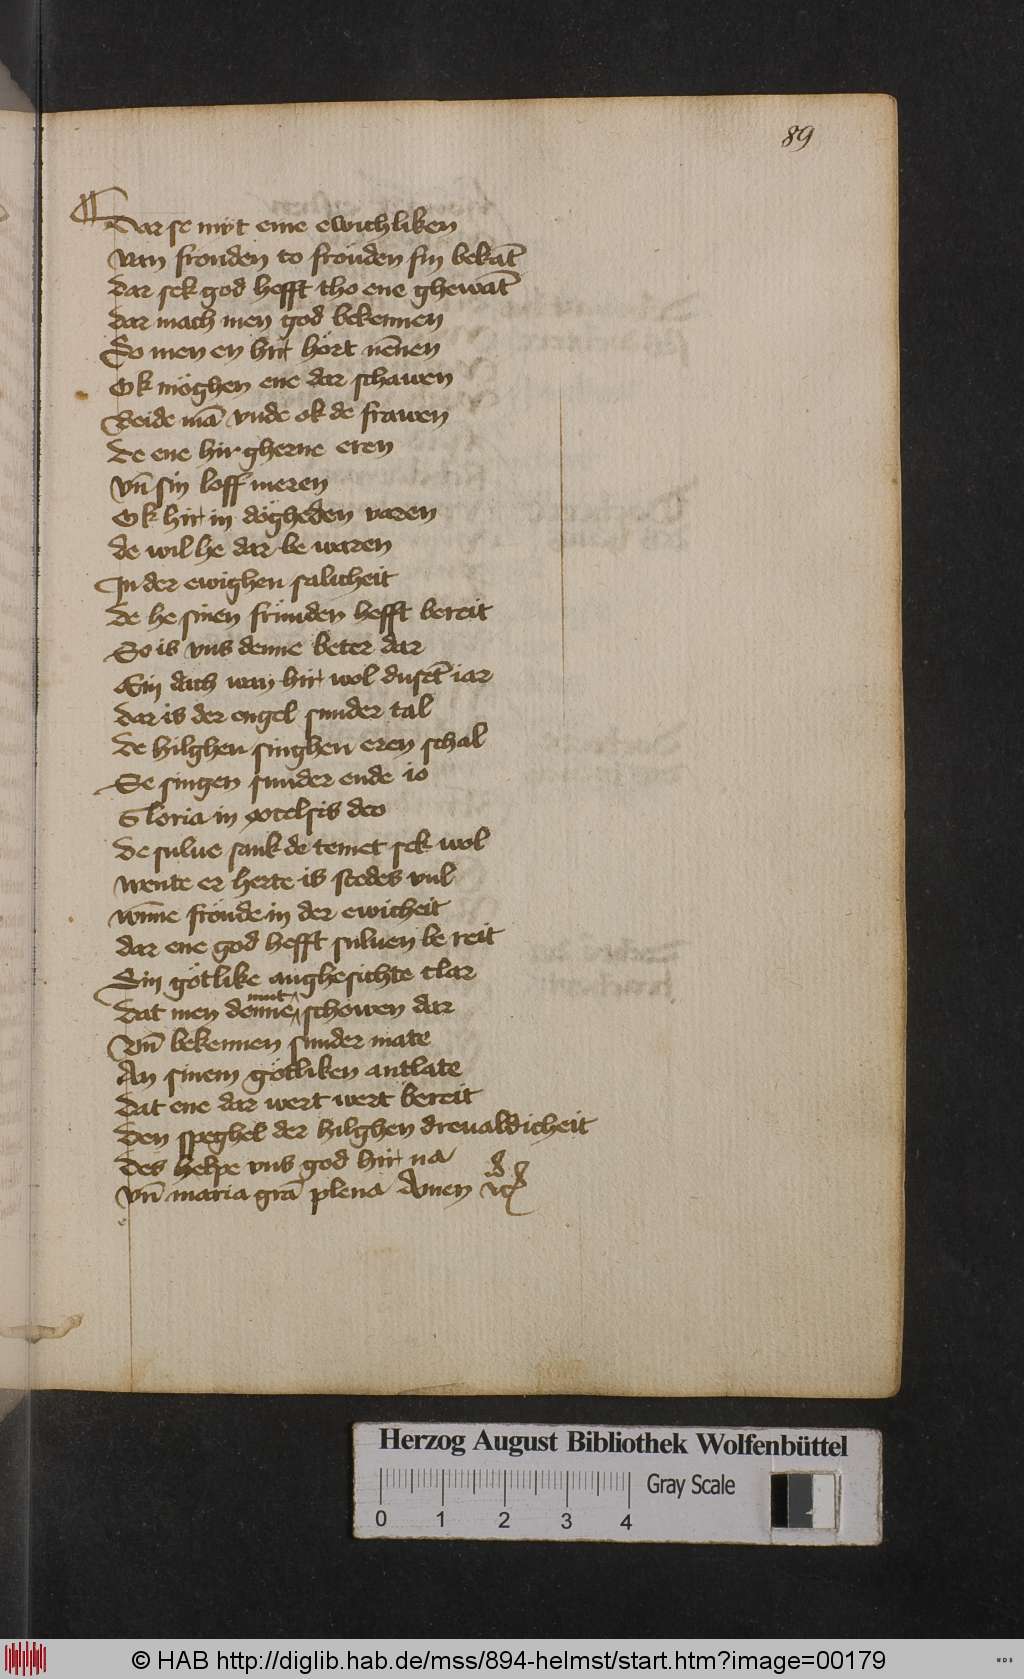 89
Dar se myt eme ewichliken
van frouden to frouden sin bekāt
dar sek god hefft tho ene ghewāt
dar mach men god bekennen
So men en hir hort nēnen
Ok möghen ene dar schawen
Beide mā vnde ok de frawen
de ene hir gherne eren
vn̄ sin loff meren
Ok hir in dögheden varen
de wil he dar be waren
In der ewighen salicheit
de he sinen frunden hefft bereit
So is vns denne beter dar
Ein dach wan hir wol dusēt iar
dar is der engel sunder tal
de hilghen singhen eren schal
Se singen sunder ende io
Gloria in excelsis deo
de sulue sank de temet sek wol
wente er herte is stedes vul
wn̄ne fröude in der ewicheit
dar ene god hefft suluen be reit
Sin götlike anghesichte clar
dat men denne mut schowen dar
Vn̄ bekennen sunder mate
An sinem götliken antlate
dat ene dar wert wert bereit
den speghel der hilghen dreualdicheit
des helpe vns god hir na
vn̄ maria grā plena Amen
Herzog August Bibliothek Wolfenbüttel
0 1 2 3 4
Gray Scale
© HAB http://diglib.hab.de/mss/894-helmst/start.htm?image=00179